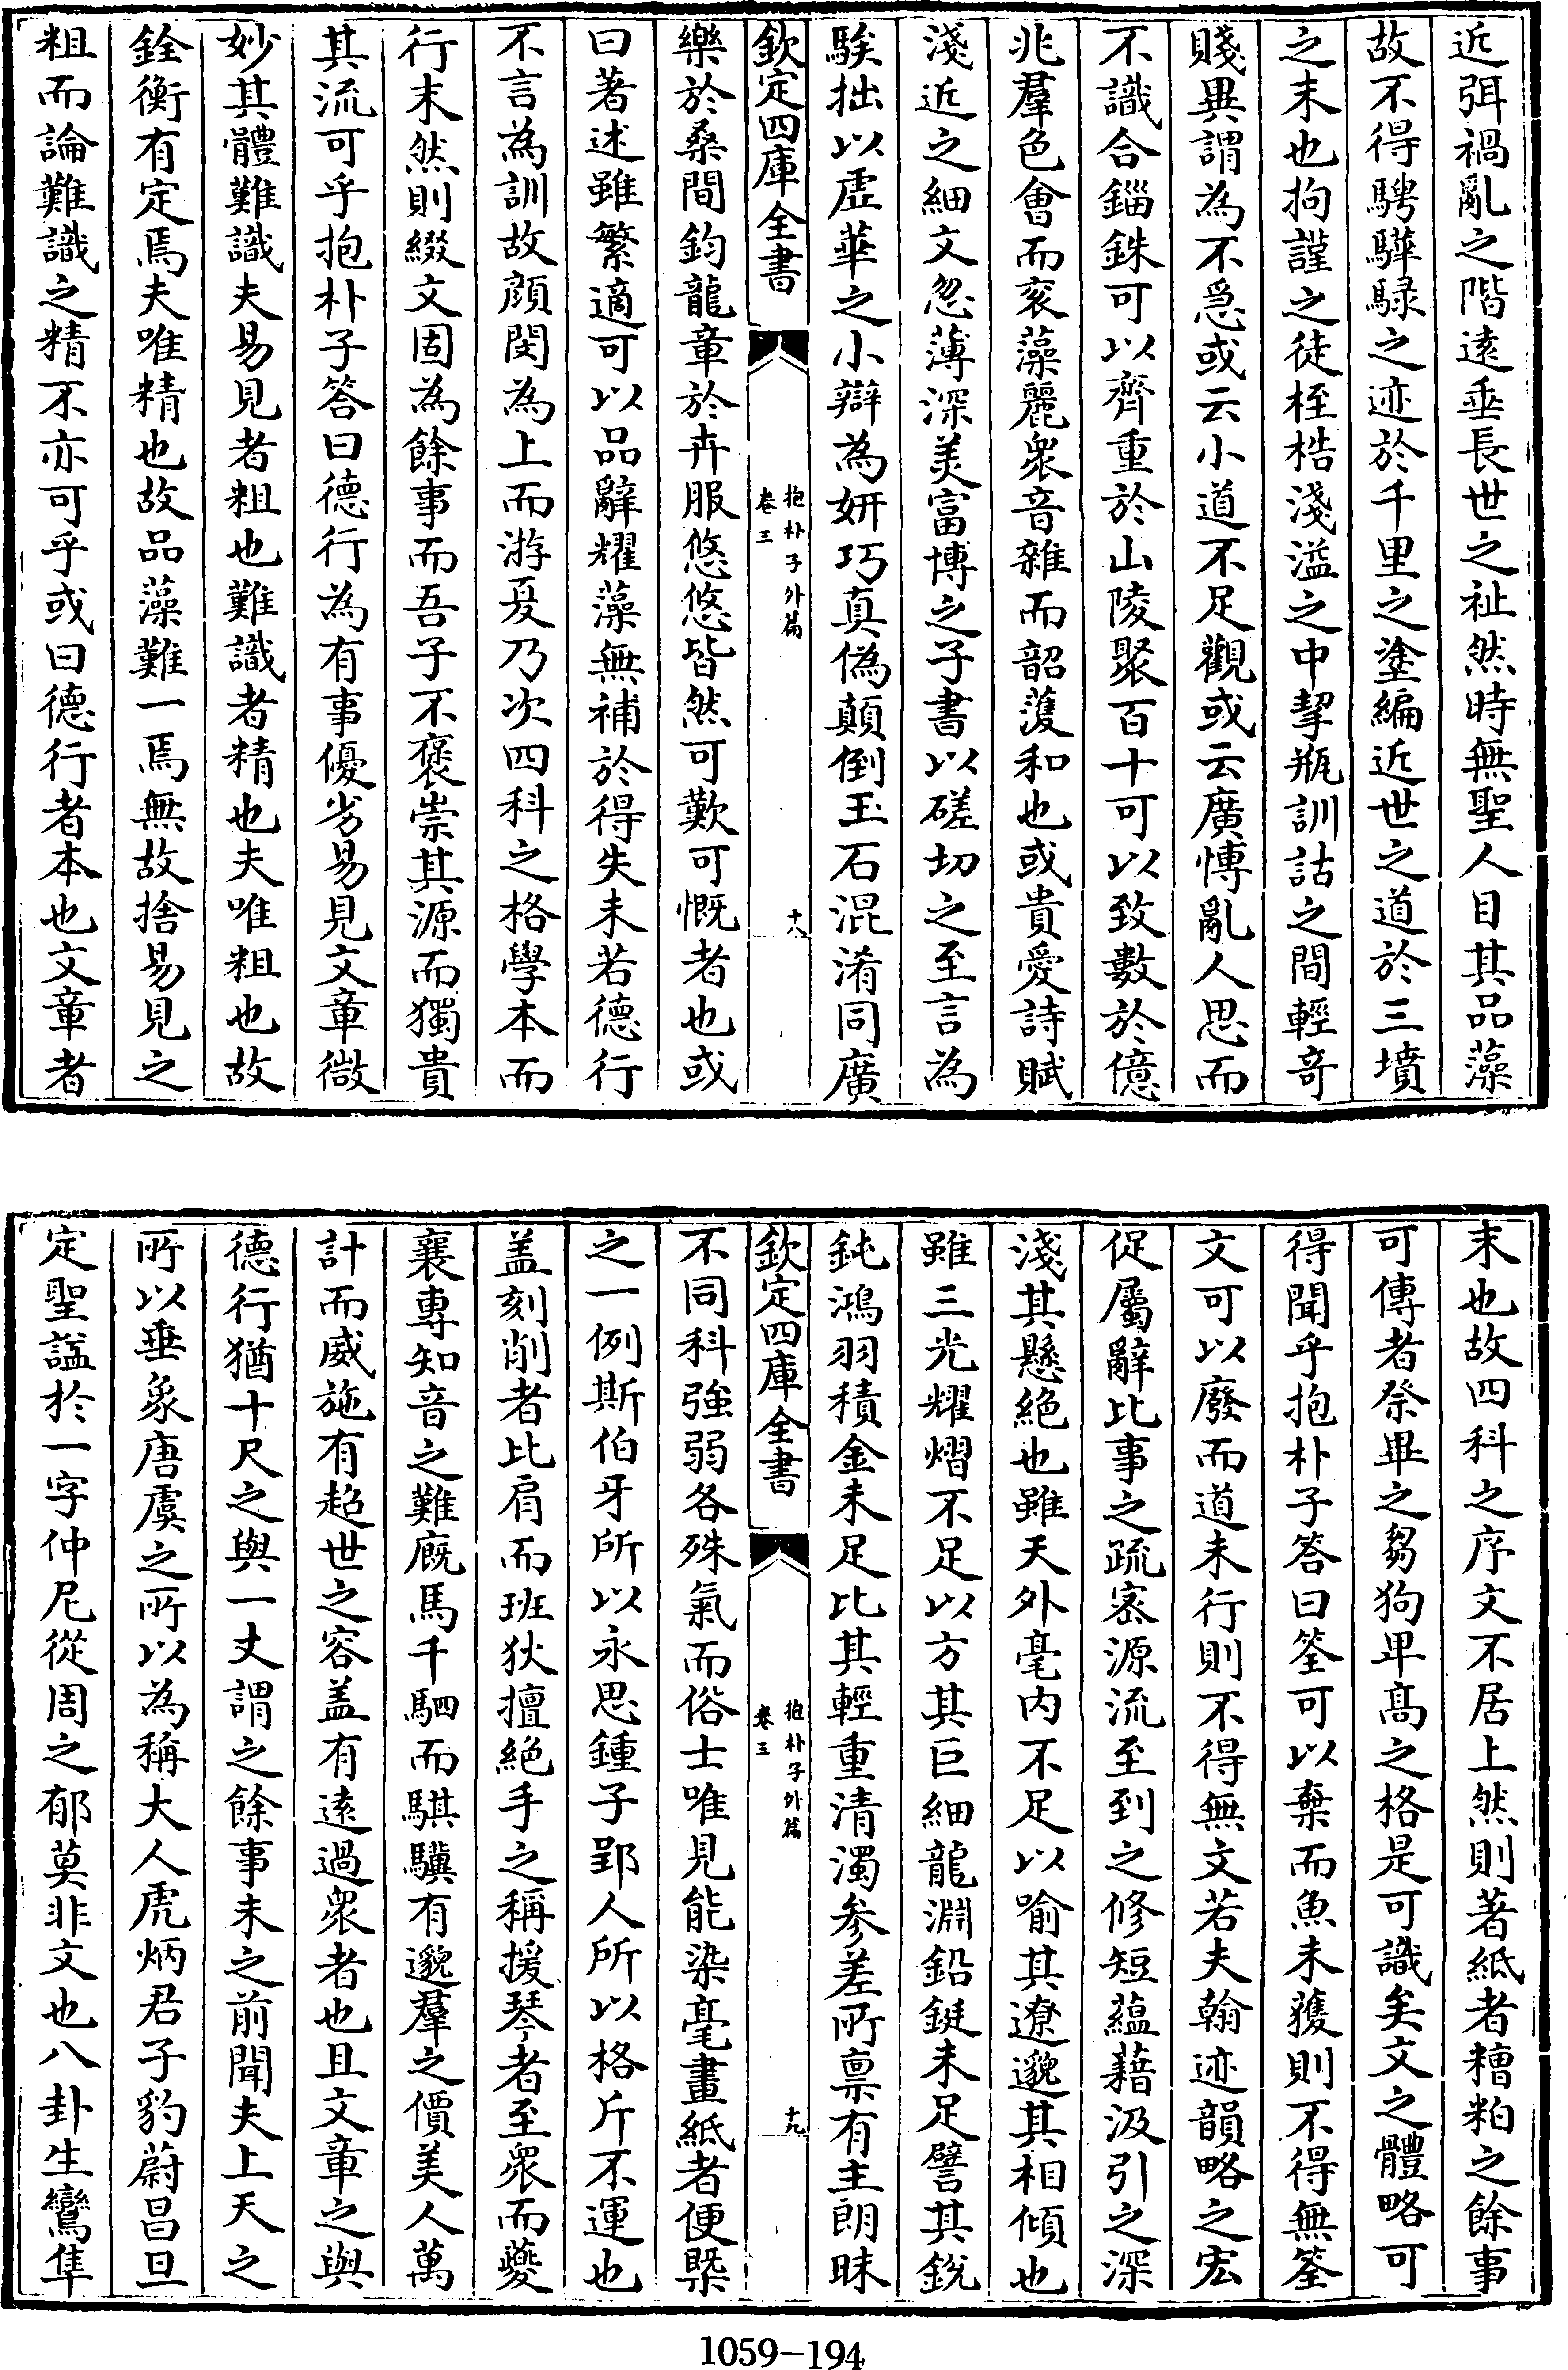 近弭禍亂之階遠垂長世之祉然時無聖人目其品藻
故不得騁驊騄之迹於千里之塗編近世之道於三墳
之末也拘謹之徒桎梏淺溢之中挈瓶訓詁之間輕奇
賤異謂為不急或云小道不足觀或云廣愽亂人思而
不識合錙銖可以齊重於山陵聚百十可以致數於億
兆羣色會而衮藻麗衆音雜而韶濩和也或貴愛詩賦
淺近之細文忽薄深美富博之子書以磋切之至言為
騃拙以虛華之小辯為妍巧真偽顛倒玉石混淆同廣
欽定四庫全書
抱朴子外篇
卷三
十八
樂於桑間鈞龍章於卉服悠悠皆然可歎可慨者也或
曰著述雖繁適可以品辭耀藻無補於得失未若德行
不言為訓故顔閔為上而游夏乃次四科之格學本而
行末然則綴文固為餘事而吾子不褒崇其源而獨貴
其流可乎抱朴子答曰德行為有事優劣易見文章微
妙其體難識夫易見者粗也難識者精也夫唯粗也故
銓衡有定焉夫唯精也故品藻難一焉無故捨易見之
粗而論難識之精不亦可乎或曰德行者本也文章者
末也故四科之序文不居上然則著紙者糟粕之餘事
可傳者祭畢之芻狗卑高之格是可識矣文之體略可
得聞乎抱朴子答曰筌可以棄而魚未獲則不得無筌
文可以廢而道未行則不得無文若夫翰迹韻略之宏
促屬辭比事之疏宻源流至到之修短蘊藉汲引之深
淺其懸絶也雖天外毫内不足以喻其遼邈其相傾也
雖三光耀熠不足以方其巨細龍淵鉛鋌未足譬其銳
鈍鴻羽積金未足比其輕重清濁參差所禀有主朗昧
欽定四庫全書
抱朴子外篇
卷三
十九
不同科強弱各殊氣而俗士唯見能染毫畫紙者便槩
之一例斯伯牙所以永思鍾子郢人所以格斤不運也
盖刻削者比肩而班狄擅絕手之稱援琴者至衆而夔
襄專知音之難廐馬千駟而騏驥有邈羣之價美人萬
計而威施有超世之容盖有遠過衆者也且文章之與
德行猶十尺之與一丈謂之餘事未之前聞夫上天之
所以垂象唐虞之所以為稱大人虎炳君子豹蔚昌旦
定聖諡於一字仲尼從周之郁莫非文也八卦生鷹隼
1059-194